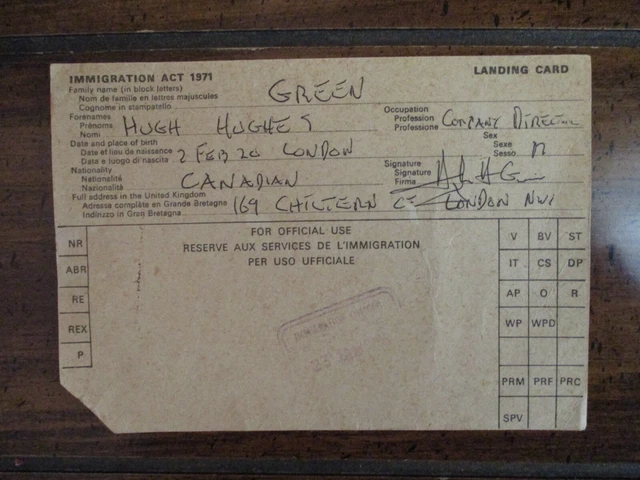 IMMIGRATION ACT 1971 LANDING CARD
Family name (in block letters)
Nom de famille en lettres majuscules
Cognome in stampatello
GREEN
Forenames
Prénoms
Nomi
HUGH HUGHES
Occupation
Profession
Professione
COMPANY DIRECTOR
Date and place of birth
Date et lieu de naissance
Data e luogo di nascita
2 FEB 20 LONDON
Sex
Sexe
Sesso
M
Nationality
Nationalité
Nazionalità
CANADIAN
Signature
Signature
Firma
Full address in the United Kingdom
Adresse complète en Grande Bretagne
Indirizzo in Gran Bretagna
169 CHILTERN CT LONDON NW1
FOR OFFICIAL USE
RESERVE AUX SERVICES DE L'IMMIGRATION
PER USO UFFICIALE
NR
ABR
RE
REX
P
V BV ST
IT CS DP
AP O R
WP WPD
PRM PRF PRC
SPV
IMMIGRATION OFFICER